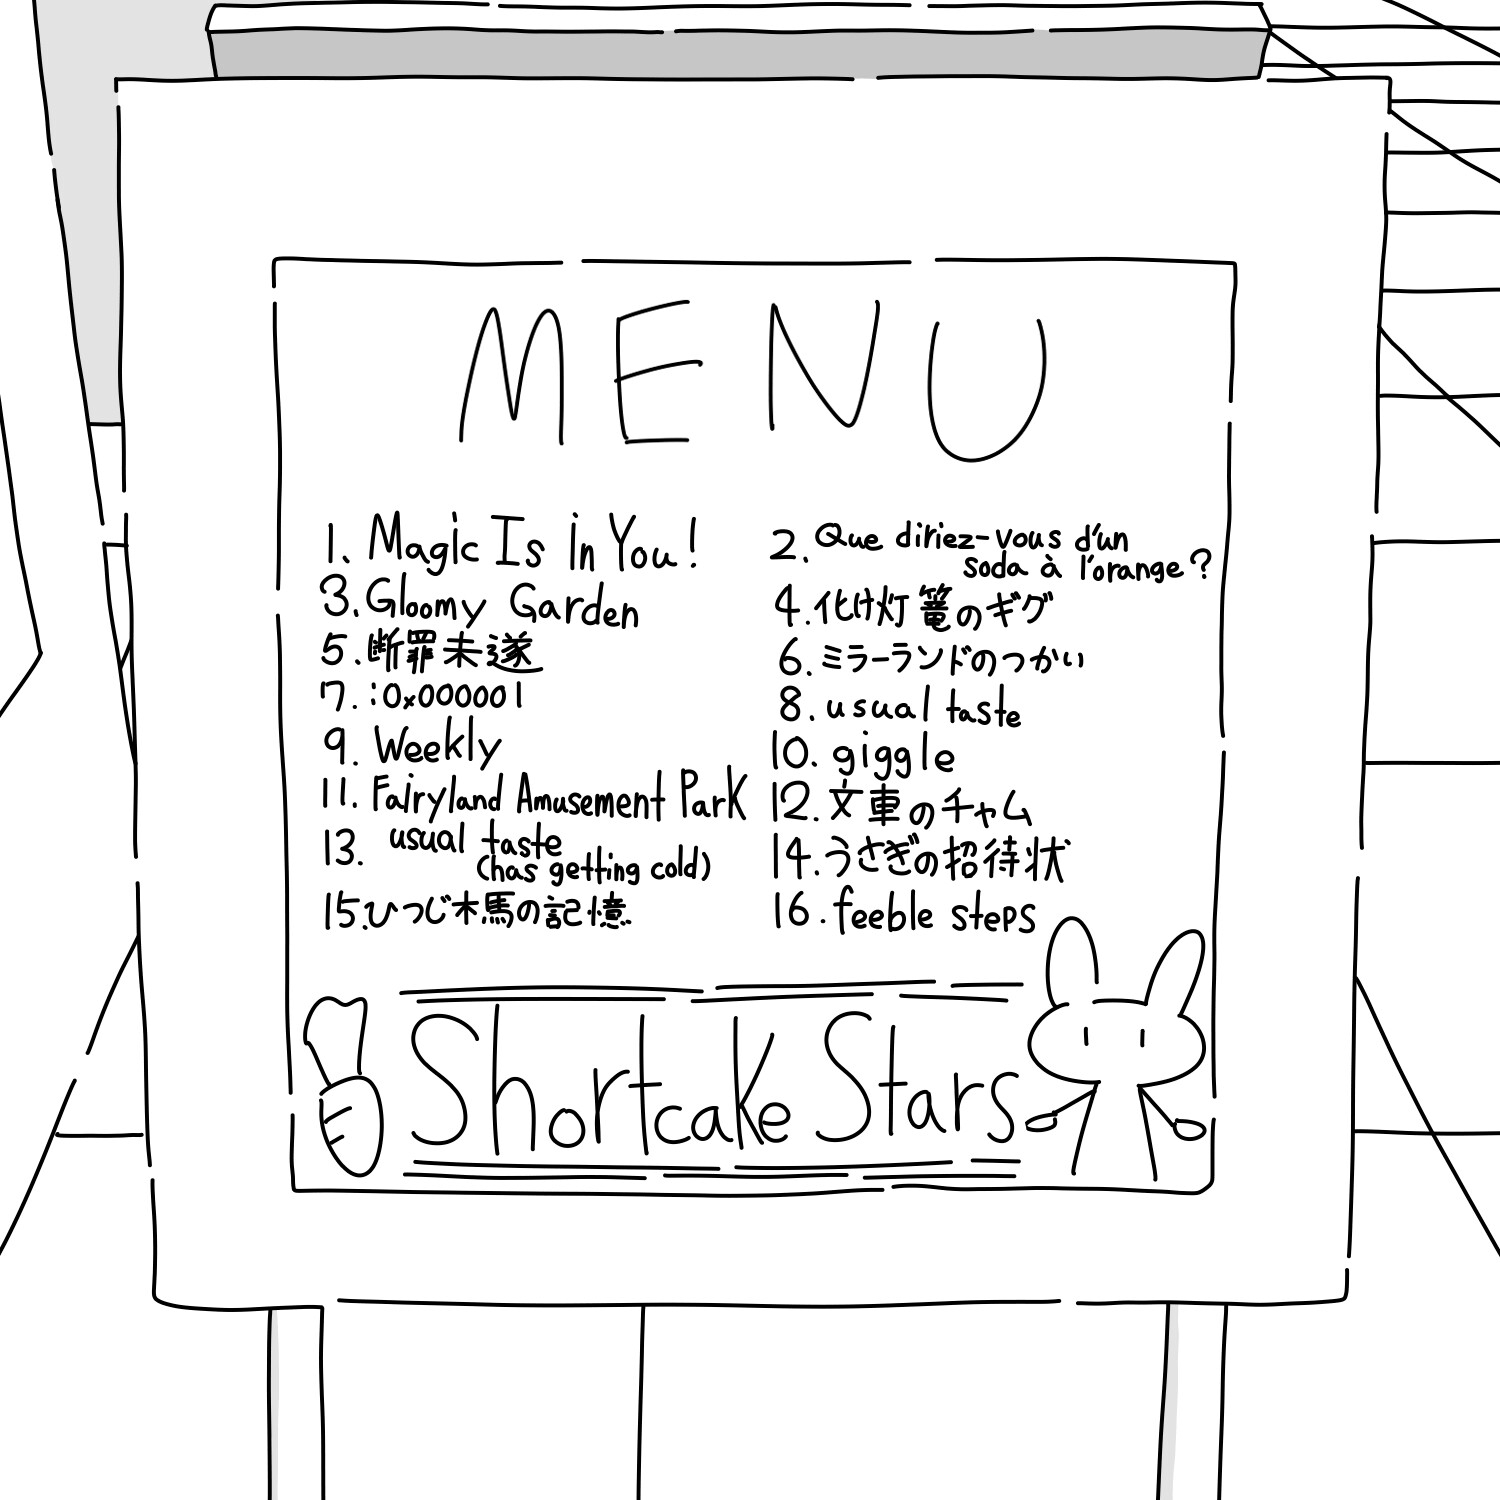 MENU
1. Magic Is in You!
2. Que diriez-vous d'un
soda à l'orange?
3. Gloomy Garden
4. 化け灯篭のギグ
5. 断罪未遂
6. ミラーランドのつかい
7. :0x000001
8. usual taste
9. Weekly
10. giggle
11. Fairyland Amusement Park
12. 文車のチャム
13. usual taste
(has getting cold)
14. うさぎの招待状
15. ひつじ木馬の記憶
16. feeble steps
Shortcake Stars